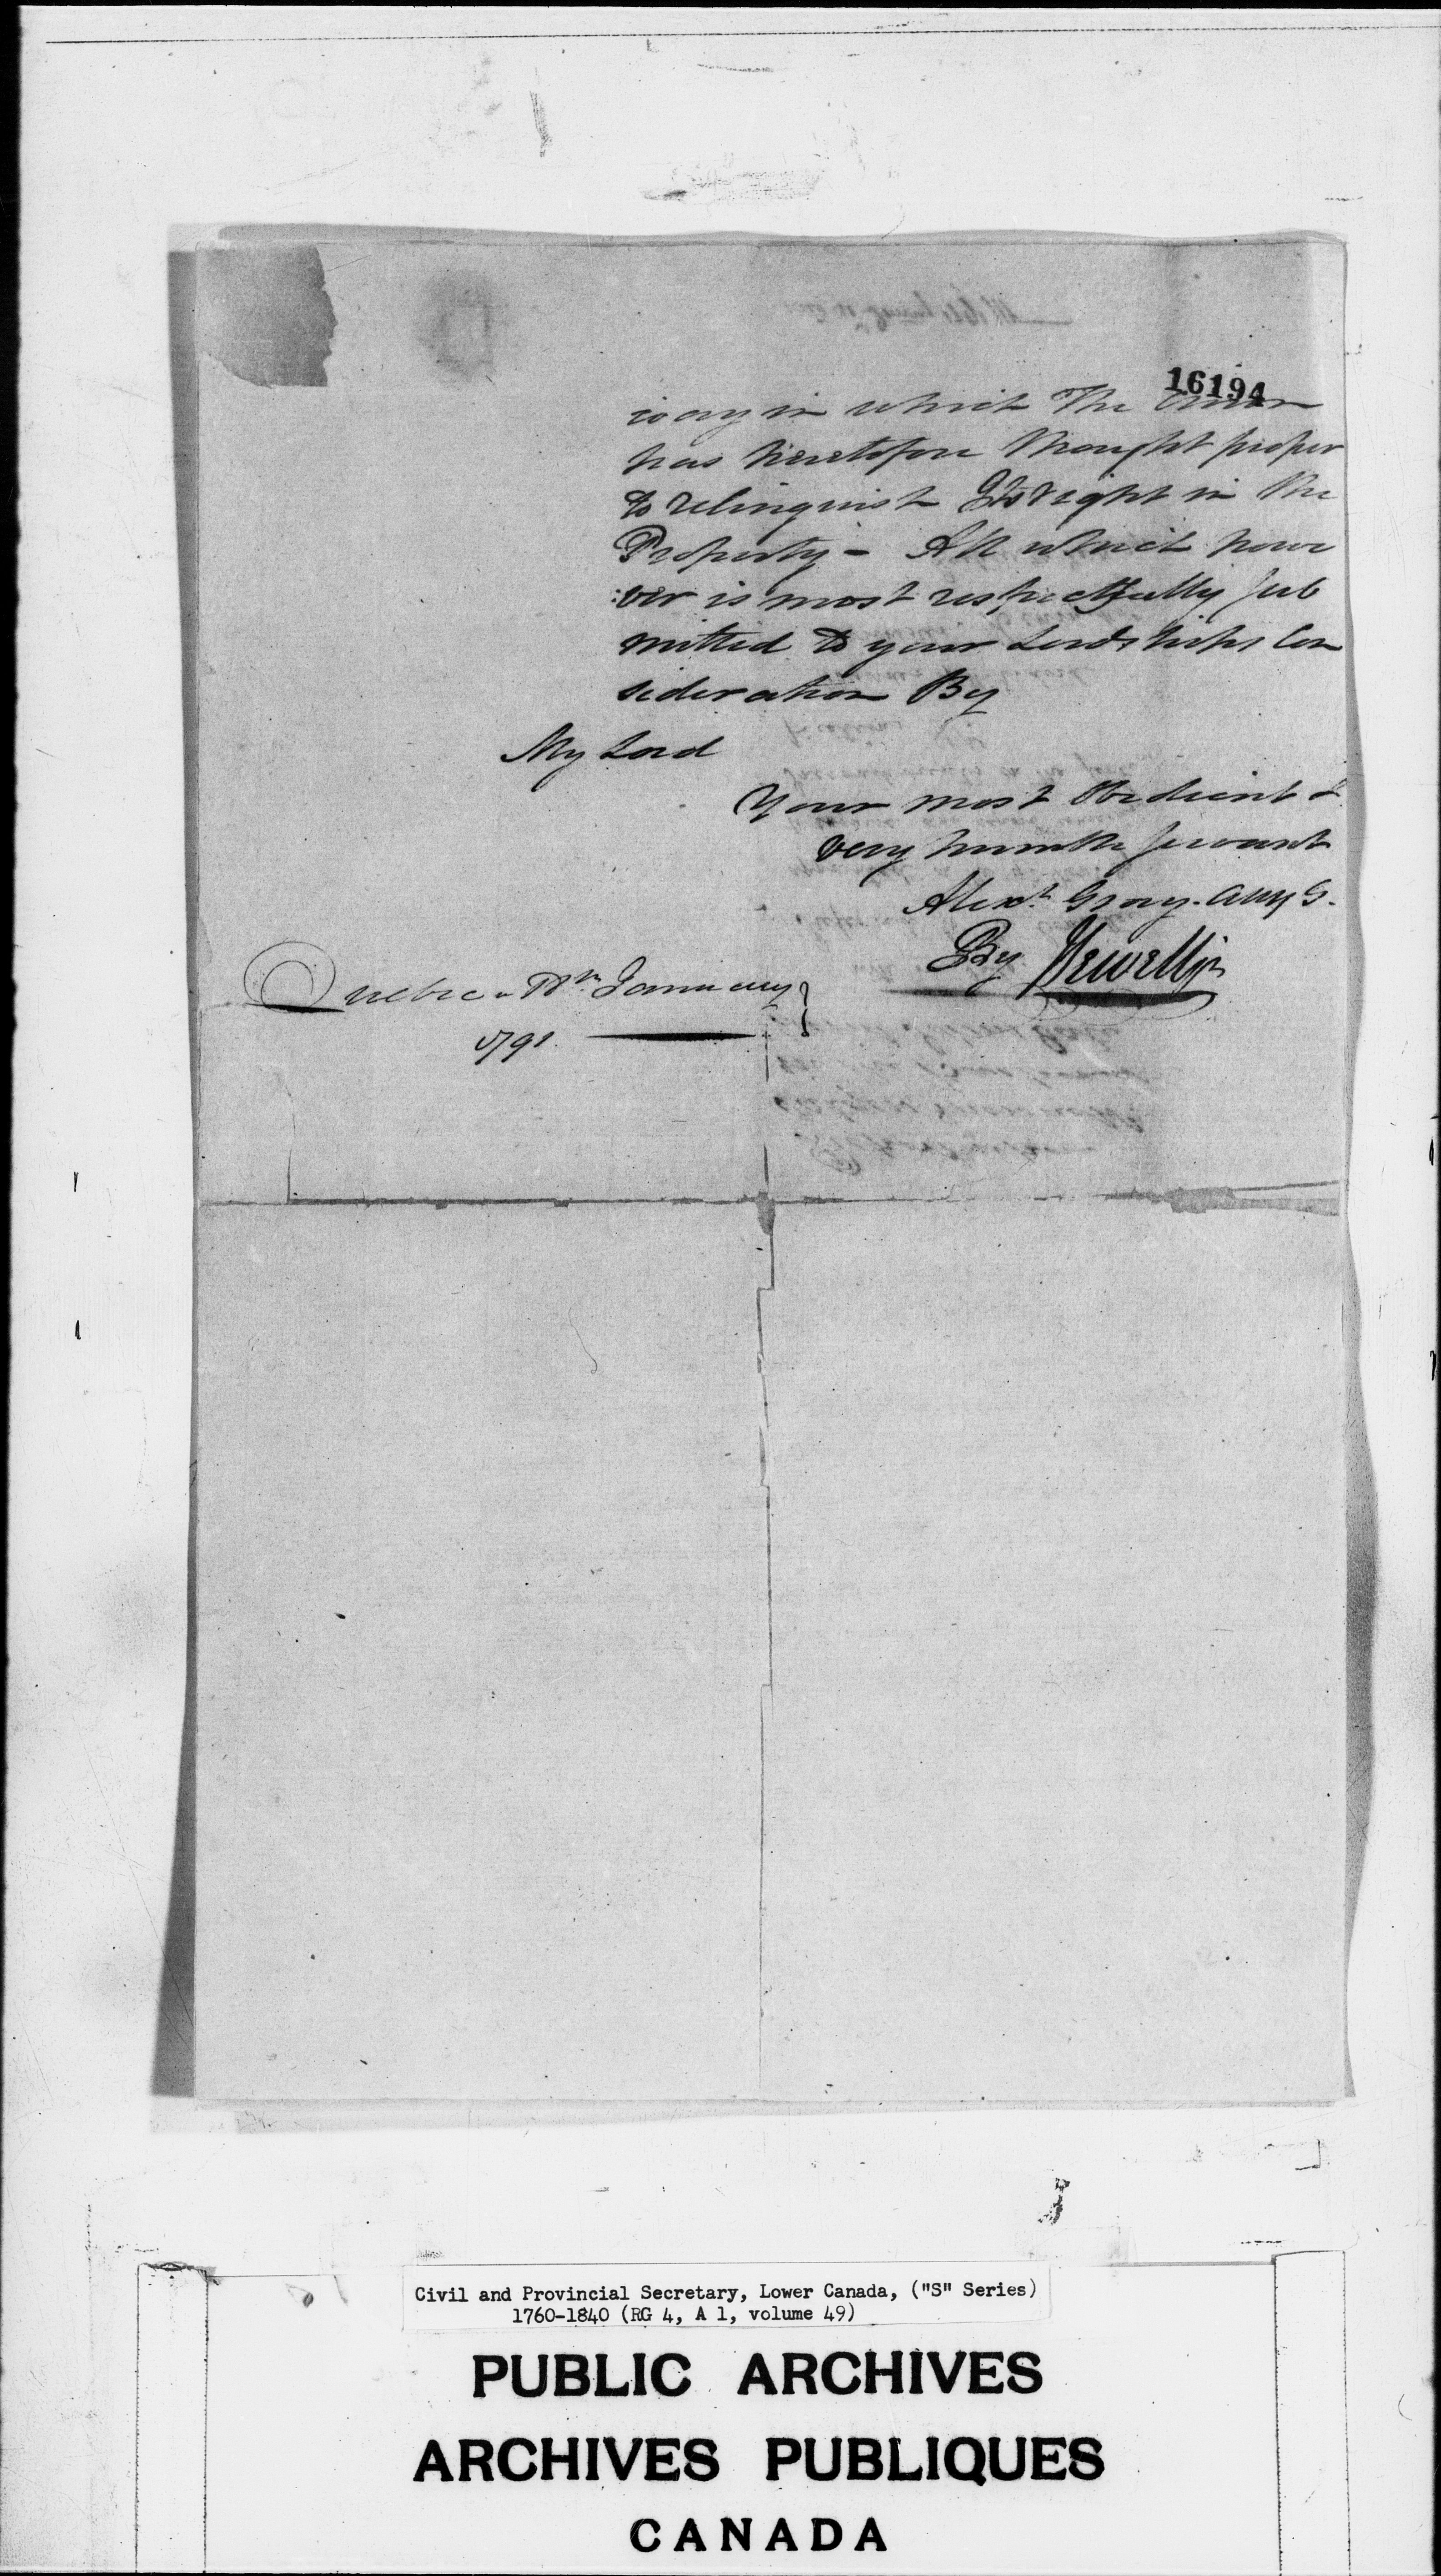 16194
way in which The Crown
has heretofore thought proper
to relinquish Its right in the
Property - All which howe
:ver is most respectfully sub
mitted to your Lordships Con
sideration By
My Lord
Your most Obedient &
very humble servant
Alexr. Gray. Atty G.
By JSewell jr
Quebec January
1791.
Civil and Provincial Secretary, Lower Canada, ("S" Series)
1760-1840 (RG 4, A 1, volume 49)
PUBLIC ARCHIVES
ARCHIVES PUBLIQUES
CANADA